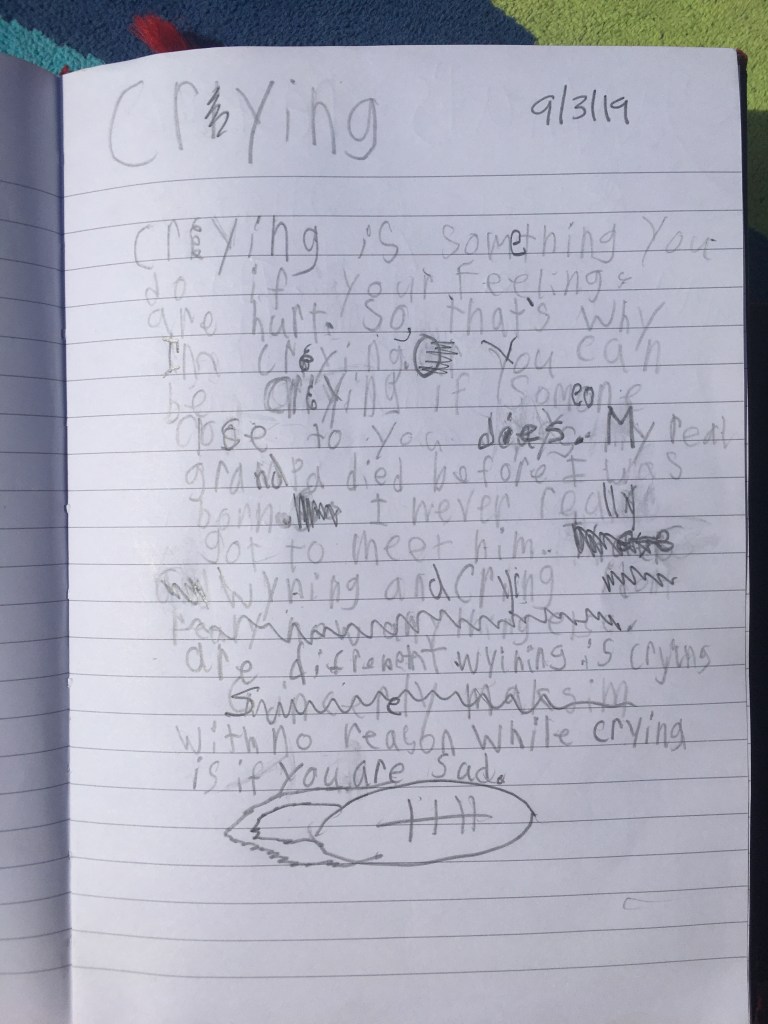 Crying 9/3/19
Crying is something you
do if your feelings
are hurt. So, that's why
I'm crying. You can
be crying if someone
close to you dies. My real
grandpa died before I was
born. I never really
got to meet him.
Wyning and Crying
are difrenent wyining is crying
with no reason while crying
is if you are sad.